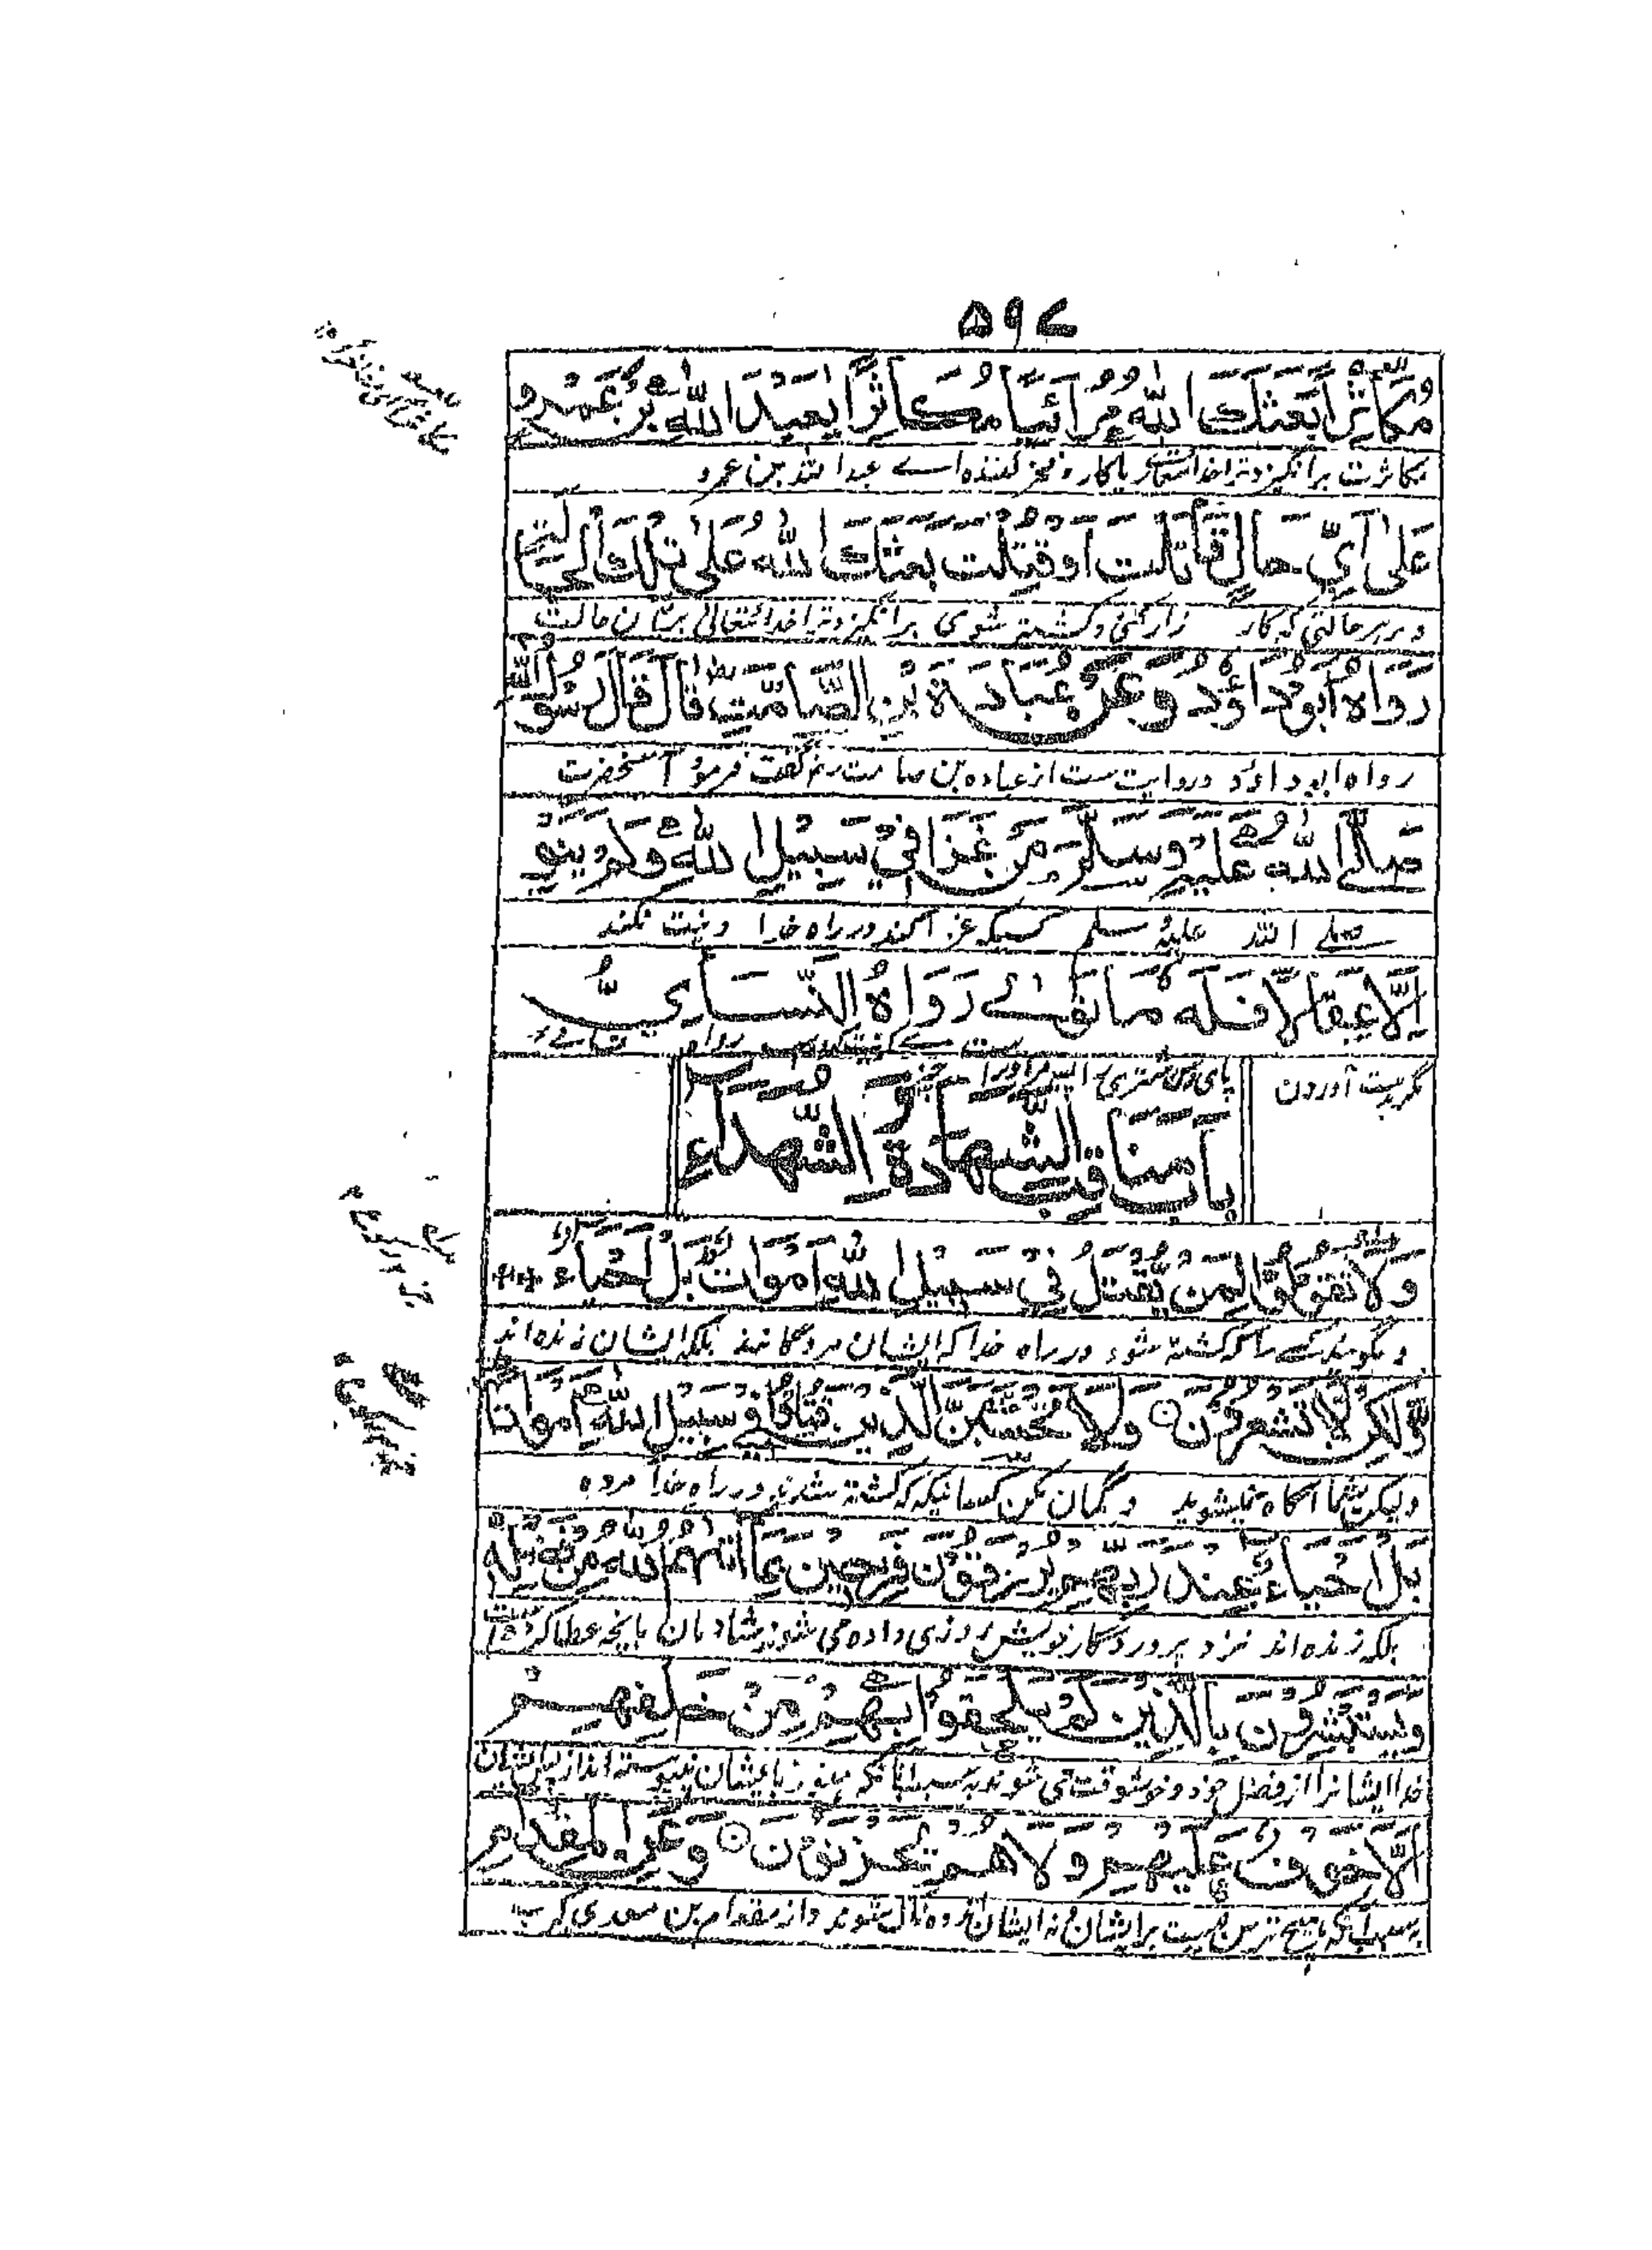 ۵۹۷
مُكَاثِرًا بَعَثَكَ اللهُ مُرَائِيًا مُكَاثِرًا يَا عَبْدَ اللهِ بْنَ عَمْرٍو
بكاثرت برانگیزد ترا خدا تعالی ریاکار و فخر کننده اے عبد الله بن عمرو
عَلٰى اَيِّ حَالٍ قَاتَلْتَ اَوْ قُتِلْتَ بَعَثَكَ اللهُ عَلٰى تِلْكَ الْحَالِ
و بر هر حالتی که کار زار کنی و کشته شوی برانگیزد ترا خدا تعالی بران حالت
رَوَاهُ اَبُوْ دَاوٗدَ وَعَنْ عُبَادَةَ بْنِ الصَّامِتِ قَالَ قَالَ رَسُوْلُ اللهِ
رواه ابو داؤد و روایت ست از عباده بن صامت رض گفت فرمود آنحضرت
صَلَّى اللهُ عَلَيْهِ وَسَلَّمَ مَنْ غَزَا فِيْ سَبِيْلِ اللهِ وَلَمْ يَنْوِ
صلے الله علیه سلم کسیکه غزا کند در راه خدا و نیت نکند
اِلَّا عِقَالًا فَلَهٗ مَا نَوٰى رَوَاهُ النَّسَائِيُّ
مگر بدست آوردن پای شتری را پس مر اورا
بَابُ مَنَاقِبِ الشَّهَادَةِ وَ الشُّهَدَاءِ
وَلَا تَقُوْلُوْا لِمَنْ يُّقْتَلُ فِيْ سَبِيْلِ اللهِ اَمْوَاتٌ بَلْ اَحْيَاءٌ
و مگوئید کسے را که کشته شود در راه خدا که ایشان مردگانند بلکه ایشان زنده اند
وَّلٰكِنْ لَّا تَشْعُرُوْنَ وَلَا تَحْسَبَنَّ الَّذِيْنَ قُتِلُوْا فِيْ سَبِيْلِ اللهِ اَمْوَاتًا
ولیکن شما آگاه نمیشوید و گمان مکن کسانیکه کشته شدند در راه خدا مرده
بَلْ اَحْيَاءٌ عِنْدَ رَبِّهِمْ يُرْزَقُوْنَ فَرِحِيْنَ بِمَا اٰتٰهُمُ اللهُ مِنْ فَضْلِهٖ
بلکه زنده اند نزد پروردگار خویش روزی داده می شوند شادمان بانچه عطا کرده است
وَيَسْتَبْشِرُوْنَ بِالَّذِيْنَ لَمْ يَلْحَقُوْا بِهِمْ مِنْ خَلْفِهِمْ
خدا ایشانرا از فضل خود و خوشوقت می شوند به سبب آنانکه هنوز باایشان نپیوسته اند از پس ایشان
اَلَّا خَوْفٌ عَلَيْهِمْ وَلَا هُمْ يَحْزَنُوْنَ وَعَنِ الْمِقْدَامِ
به سبب آنکه هیچ ترس نیست بر ایشان و نه ایشان اندوهناک شوند و از مقدام بن معدی کرب